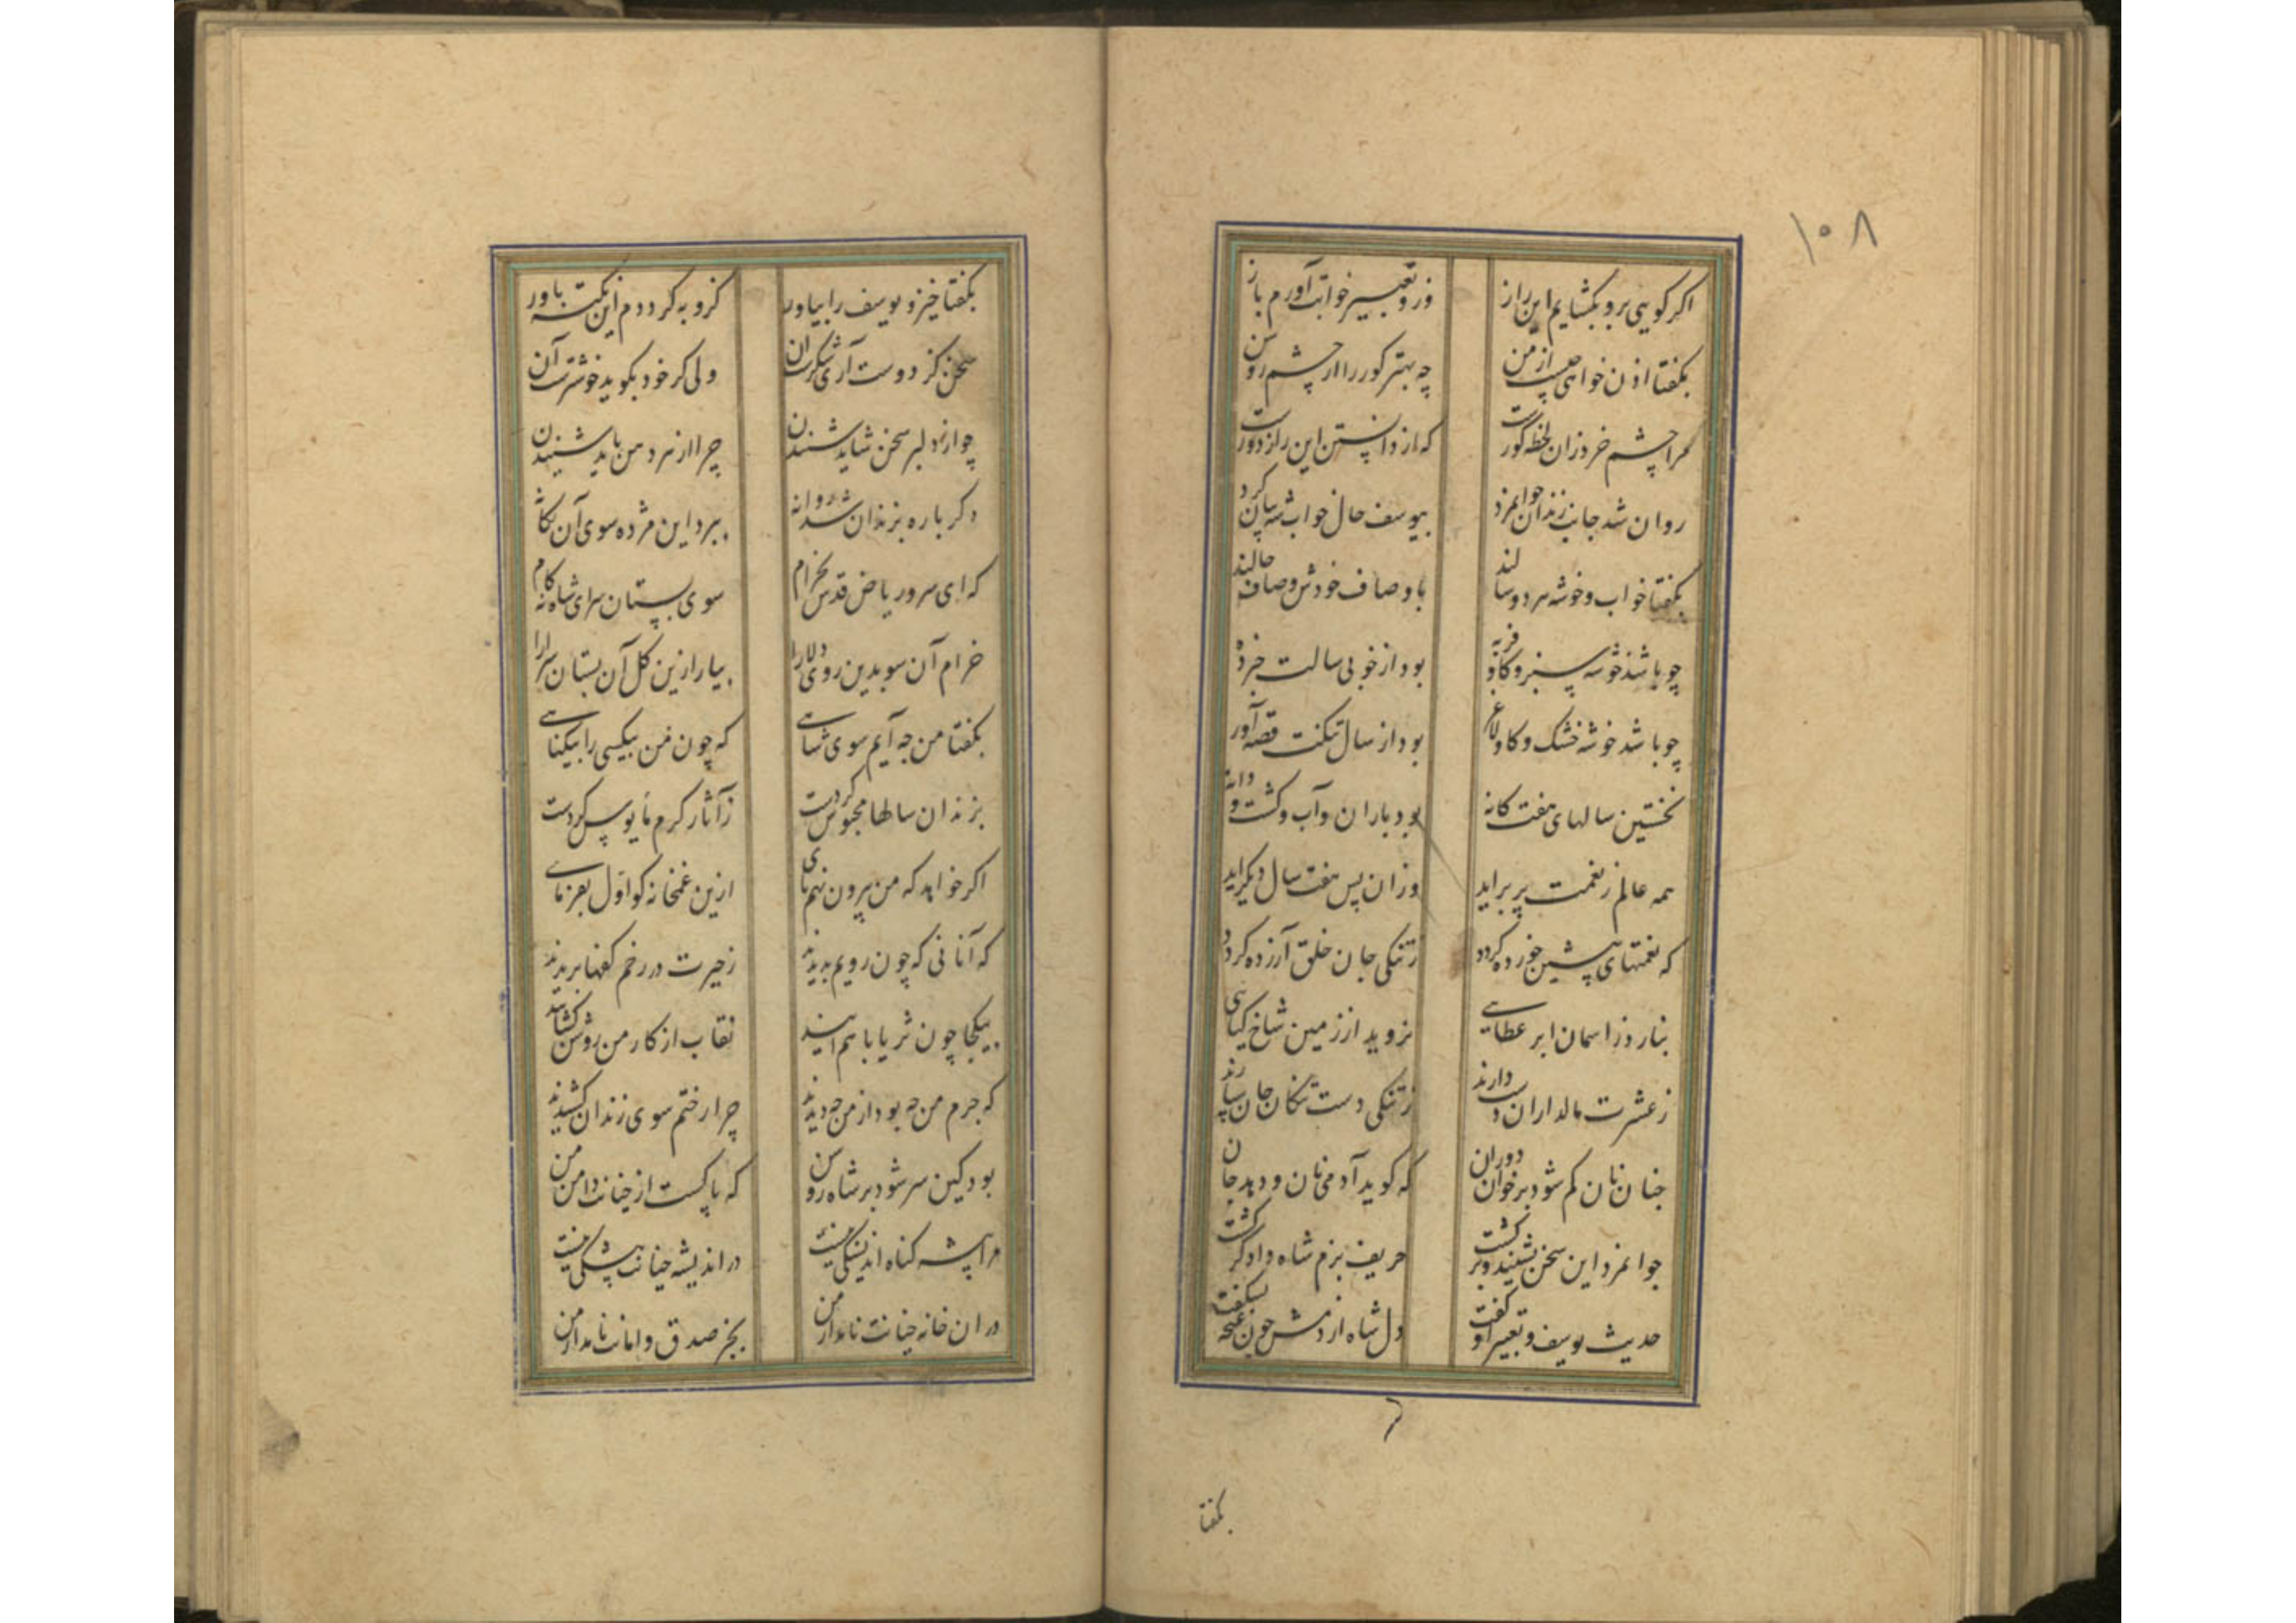 ۱۰۸
اکر کویی برو بکشایم این راز وزو تعبیر خوابت آورم باز
بکفتا اذن خواهی چیست از من چه بهتر کور را از چشم روشن
مرا چشم خرد زان لحظه کورست که از دانستن این راز دورست
روان شد جانب زندان جوانمرد بیوسف حال خواب شه بیان کرد
بکفتا خواب و خوشه هر دو سالند باوصاف خودش وصاف حالند
چو باشد خوشه سبز و کاو فربه بود از خوبی سالت خبرده
چو باشد خوشه خشک و کاو لاغر بود از سال تنکت قصه آور
نخستین سالهای هفت کانه بود باران و آب و کشت و دانه
همه عالم ز نعمت پر براید وزان پس هفت سال دیکر اید
که نعمتهای پیشین خورده کردد ز تنکی جان خلق آزرده کردد
نبارد ز اسمان ابر عطایی نروید از زمین شاخ کیاهی
ز عشرت مالداران دست دارند ز تنکی دست تنکان جان سپارند
چنان نان کم شود بر خوان دوران که کوید آدمی نان و دهد جان
جوانمرد این سخن بشنید و برکشت حریف بزم شاه دادکر کشت
حدیث یوسف و تعبیر او کفت دل شاه از دمش چون غنچه بشکفت
بکفتا
بکفتا خیز و یوسف را بیاور کزو به کرددم این نکته باور
سخن کز دوست آری شکرست آن ولی کر خود بکوید خوشترست آن
چو از دلبر سخن شاید شنیدن چرا از هر دهن باید شنیدن
دکر باره بزندان شد روانه ببرد این مژده سوی آن یکانه
که ای سرو ریاض قدس بخرام سوی بستان سرای شاه نه کام
خرام آن سو بدین روی دلارا بیارا زین کل آن بستان سرا را
بکفتا من چه آیم سوی شاهی که چون من بیکسی را بیکناهی
بزندان سالها محبوس کردست ز آثار کرم مأیوس کردست
اکر خواهد که من بیرون نهم پای ازین غمخانه کو اول بفرمای
که آنانی که چون رویم بدیدند ز حیرت در رخم کفها بریدند
بیکجا چون ثریا باهم ایند نقاب از کار من روشن کشایند
که جرم من چه بود از من چه دیدند چرا رختم سوی زندان کشیدند
بود کین سر شود بر شاه روشن که پاکست از خیانت دامن من
مرا پیشه کناه اندیشکی نیست در اندیشه خیانت پیشکی نیست
در ان خانه خیانت نامد از من بجز صدق و امانت نامد از من